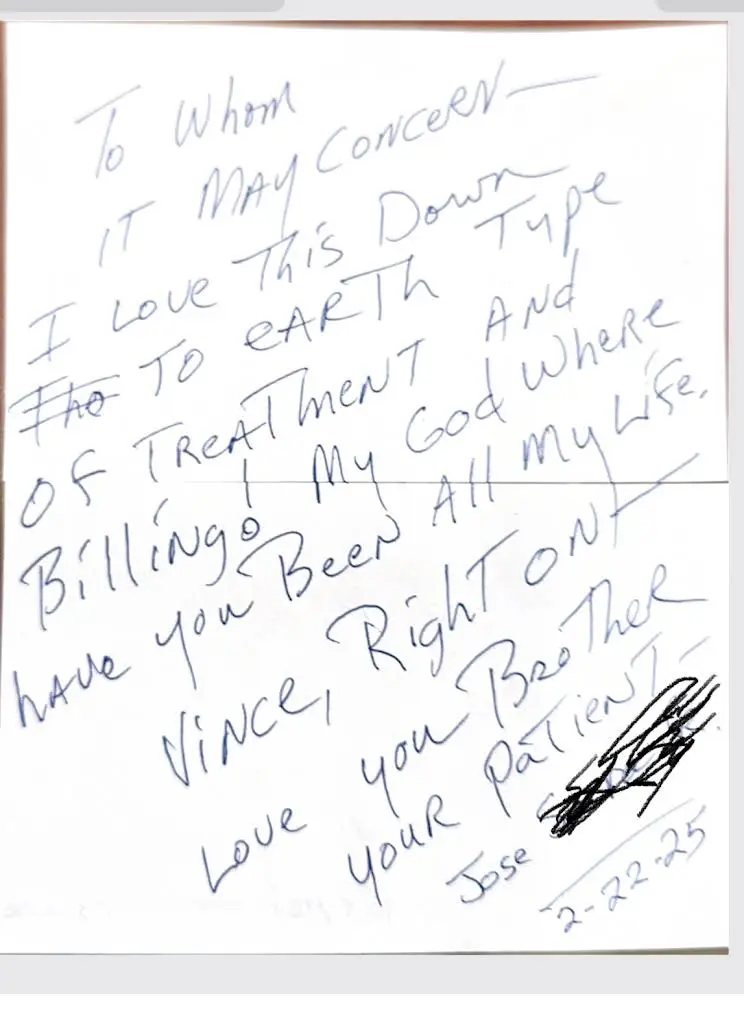 To Whom
IT MAY CONCERN—
I LOVE THis Down
TO EARTH TYPE
OF TREATMENT ANd
Billing! My God WHERE
HAVE you BEEN All my LiFE.
ViNCE, RigHT ON—
LOVE you BROTHER
YOUR PATIENT—
JOSE
2-22-25